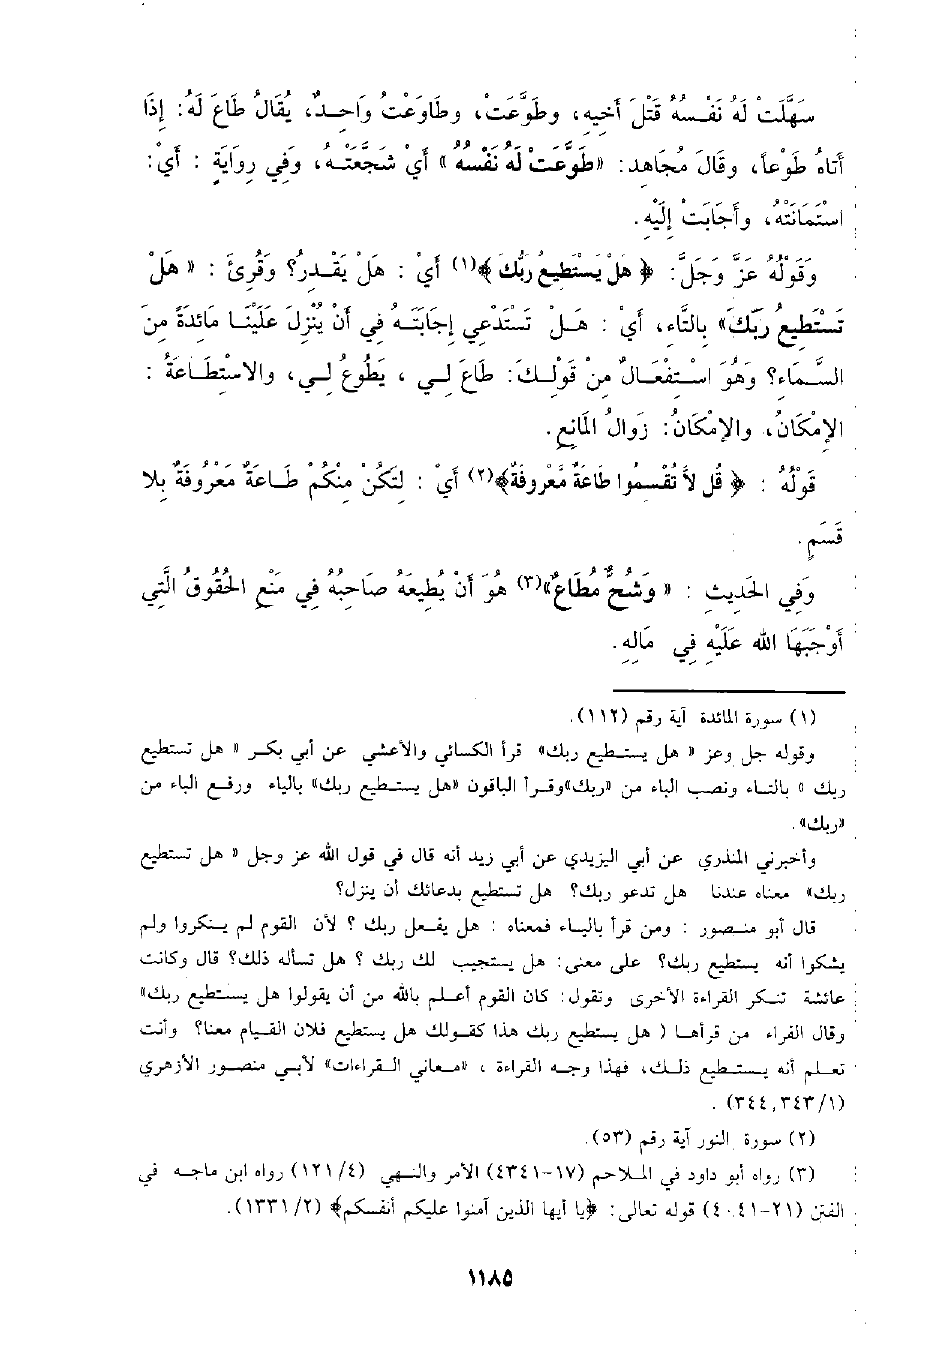 سَهَّلَتْ لَهُ نَفْسُهُ قَتْلَ أَخِيهِ، وطَوَّعَتْ، وطَاوَعَتْ وَاحِدٌ، يُقَالُ طَاعَ لَهُ: إِذَا
أَتَاهُ طَوْعاً، وقَالَ مُجَاهد: «طَوَّعَتْ لَهُ نَفْسُهُ» أَيْ شَجَّعَتْهُ، وَفِي رِوَايَةٍ : أَيْ:
اسْتَمَالَتْهُ، وأَجَابَتْ إِلَيْهِ.
وَقَوْلُهُ عَزَّ وَجَلَّ: ﴿ هَلْ يَسْتَطِيعُ رَبُّكَ ﴾(١) أَيْ : هَلْ يَقْدِرُ؟ وَقُرِئَ : « هَلْ
تَسْتَطِيعُ رَبَّكَ» بِالتَّاءِ، أَيْ : هَلْ تَسْتَدْعِي إِجَابَتَهُ فِي أَنْ يُنْزِلَ عَلَيْنَا مَائدَةً مِنَ
السَّمَاءِ؟ وَهُوَ اسْتِفْعَالٌ مِنْ قَوْلِكَ: طَاعَ لِي ، يَطُوعُ لِي، والاسْتِطَاعَةُ :
الإِمْكَانُ، والإِمْكَانُ: زَوالُ المَانِعِ.
قَوْلُهُ : ﴿ قُل لاَّ تُقْسِمُوا طَاعَةٌ مَّعْرُوفَةٌ﴾(٢) أَيْ : لِتَكُنْ مِنْكُمْ طَاعَةٌ مَعْرُوفَةٌ بِلا
قَسَمٍ.
وَفِي الحَدِيثِ : « وَشُحٌّ مُطَاعٌ»(٣) هُوَ أَنْ يُطِيعَهُ صَاحِبُهُ فِي مَنْعِ الحُقُوقِ الَّتِي
أَوْجَبَهَا الله عَلَيْهِ فِي مَالِهِ.
(١) سورة المائدة آية رقم (١١٢).
وقوله جل وعز « هل يستطيع ربك» قرأ الكسائي والأعشى عن أبي بكر « هل تستطيع
ربك » بالتاء ونصب الباء من «ربك»وقرأ الباقون «هل يستطيع ربك» بالياء ورفع الباء من
«ربك».
وأخبرني المنذري عن أبي اليزيدي عن أبي زيد أنه قال في قول الله عز وجل « هل تستطيع
ربك» معناه عندنا هل تدعو ربك؟ هل تستطيع بدعائك أن ينزل؟
قال أبو منصور : ومن قرأ بالياء فمعناه : هل يفعل ربك ؟ لأن القوم لم ينكروا ولم
يشكوا أنه يستطيع ربك؟ على معنى: هل يستجيب لك ربك ؟ هل تسأله ذلك؟ قال وكانت
عائشة تنكر القراءة الأخرى وتقول: كان القوم أعلم بالله من أن يقولوا هل يستطيع ربك»
وقال الفراء من قرأها ( هل يستطيع ربك هذا كقولك هل يستطيع فلان القيام معنا؟ وأنت
تعلم أنه يستطيع ذلك، فهذا وجه القراءة ، «معاني القراءات» لأبي منصور الأزهري
(١/ ٣٤٤,٣٤٣) .
(٢) سورة النور آية رقم (٥٣).
(٣) رواه أبو داود في الملاحم (١٧-٤٣٤١) الأمر والنهي (٤/ ١٢١) رواه ابن ماجه في
الفتن (٢١-٤٠٤١) قوله تعالى: ﴿يا أيها الذين آمنوا عليكم أنفسكم﴾ (٢/ ١٣٣١).
١١٨٥